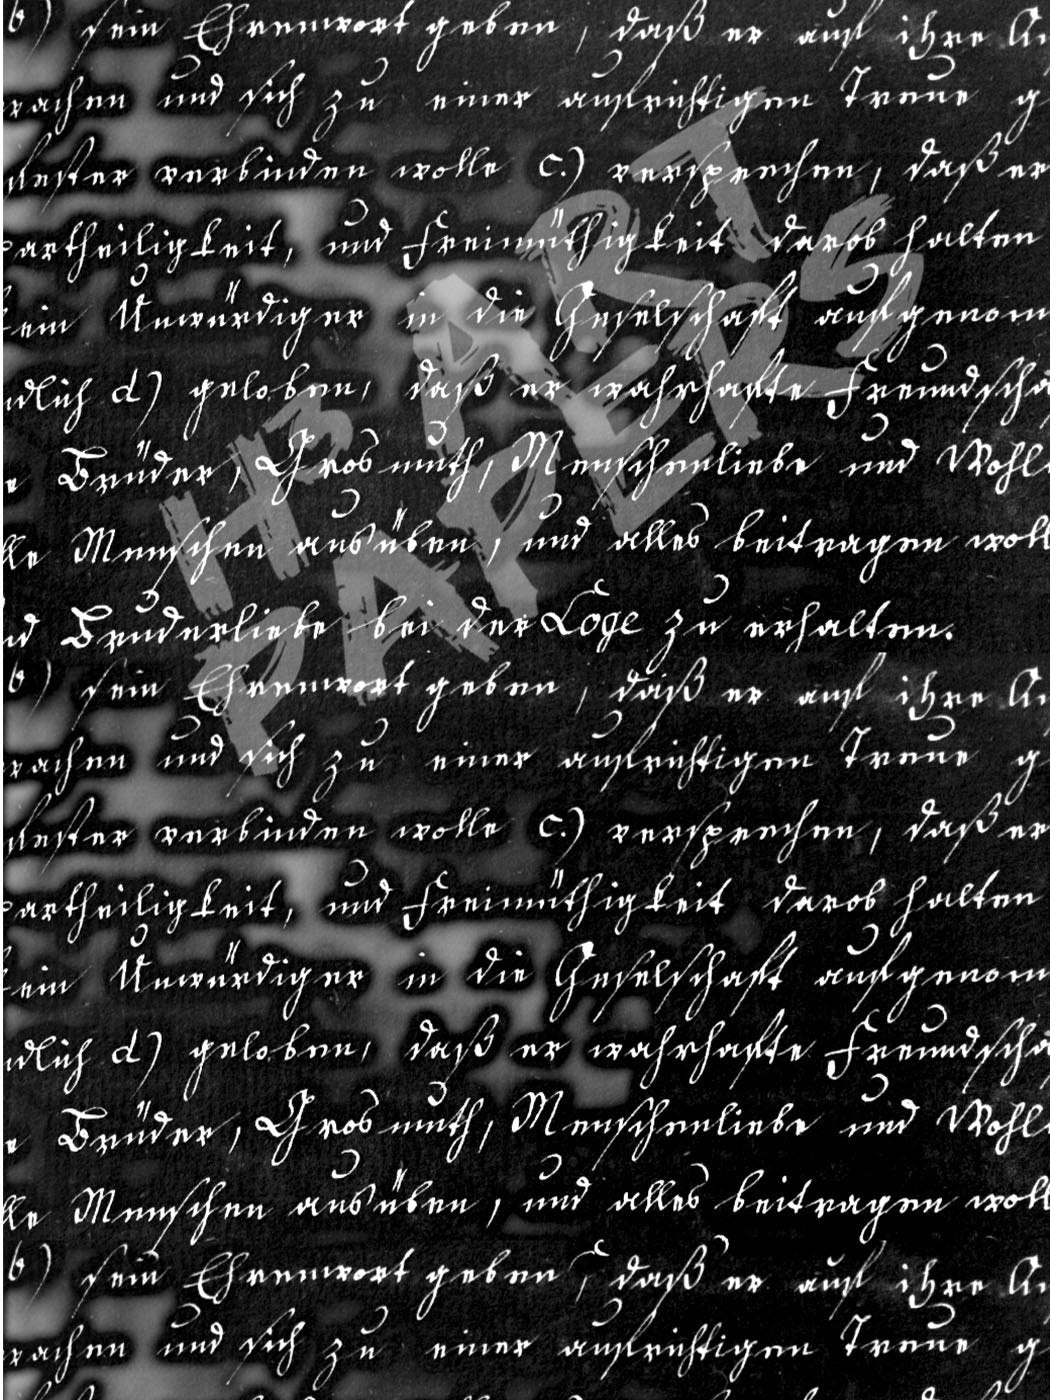 b) sein Ehrenwort geben, daß er auf ihre
machen und sich zu einer aufrichtigen Treue
verbinden wolle c.) versprechen, daß er
partheiligkeit, und Freimüthigkeit darob halten
kein Unwürdiger in die Geselschaft aufgenom
ndlich d) geloben, daß er wahrhafte Freundscha
e Brüder, Grosmuth, Menschenliebe und Wohl
lle Menschen ausüben, und alles beitragen woll
nd Bruderliebe bei der Loge zu erhalten.
b) sein Ehrenwort geben, daß er auf ihre
machen und sich zu einer aufrichtigen Treue
verbinden wolle c.) versprechen, daß er
partheiligkeit, und Freimüthigkeit darob halten
kein Unwürdiger in die Geselschaft aufgenom
ndlich d) geloben, daß er wahrhafte Freundscha
e Brüder, Grosmuth, Menschenliebe und Wohl
lle Menschen ausüben, und alles beitragen woll
b) sein Ehrenwort geben, daß er auf ihre
machen und sich zu einer aufrichtigen Treue
H3 ART'S
PAPERS